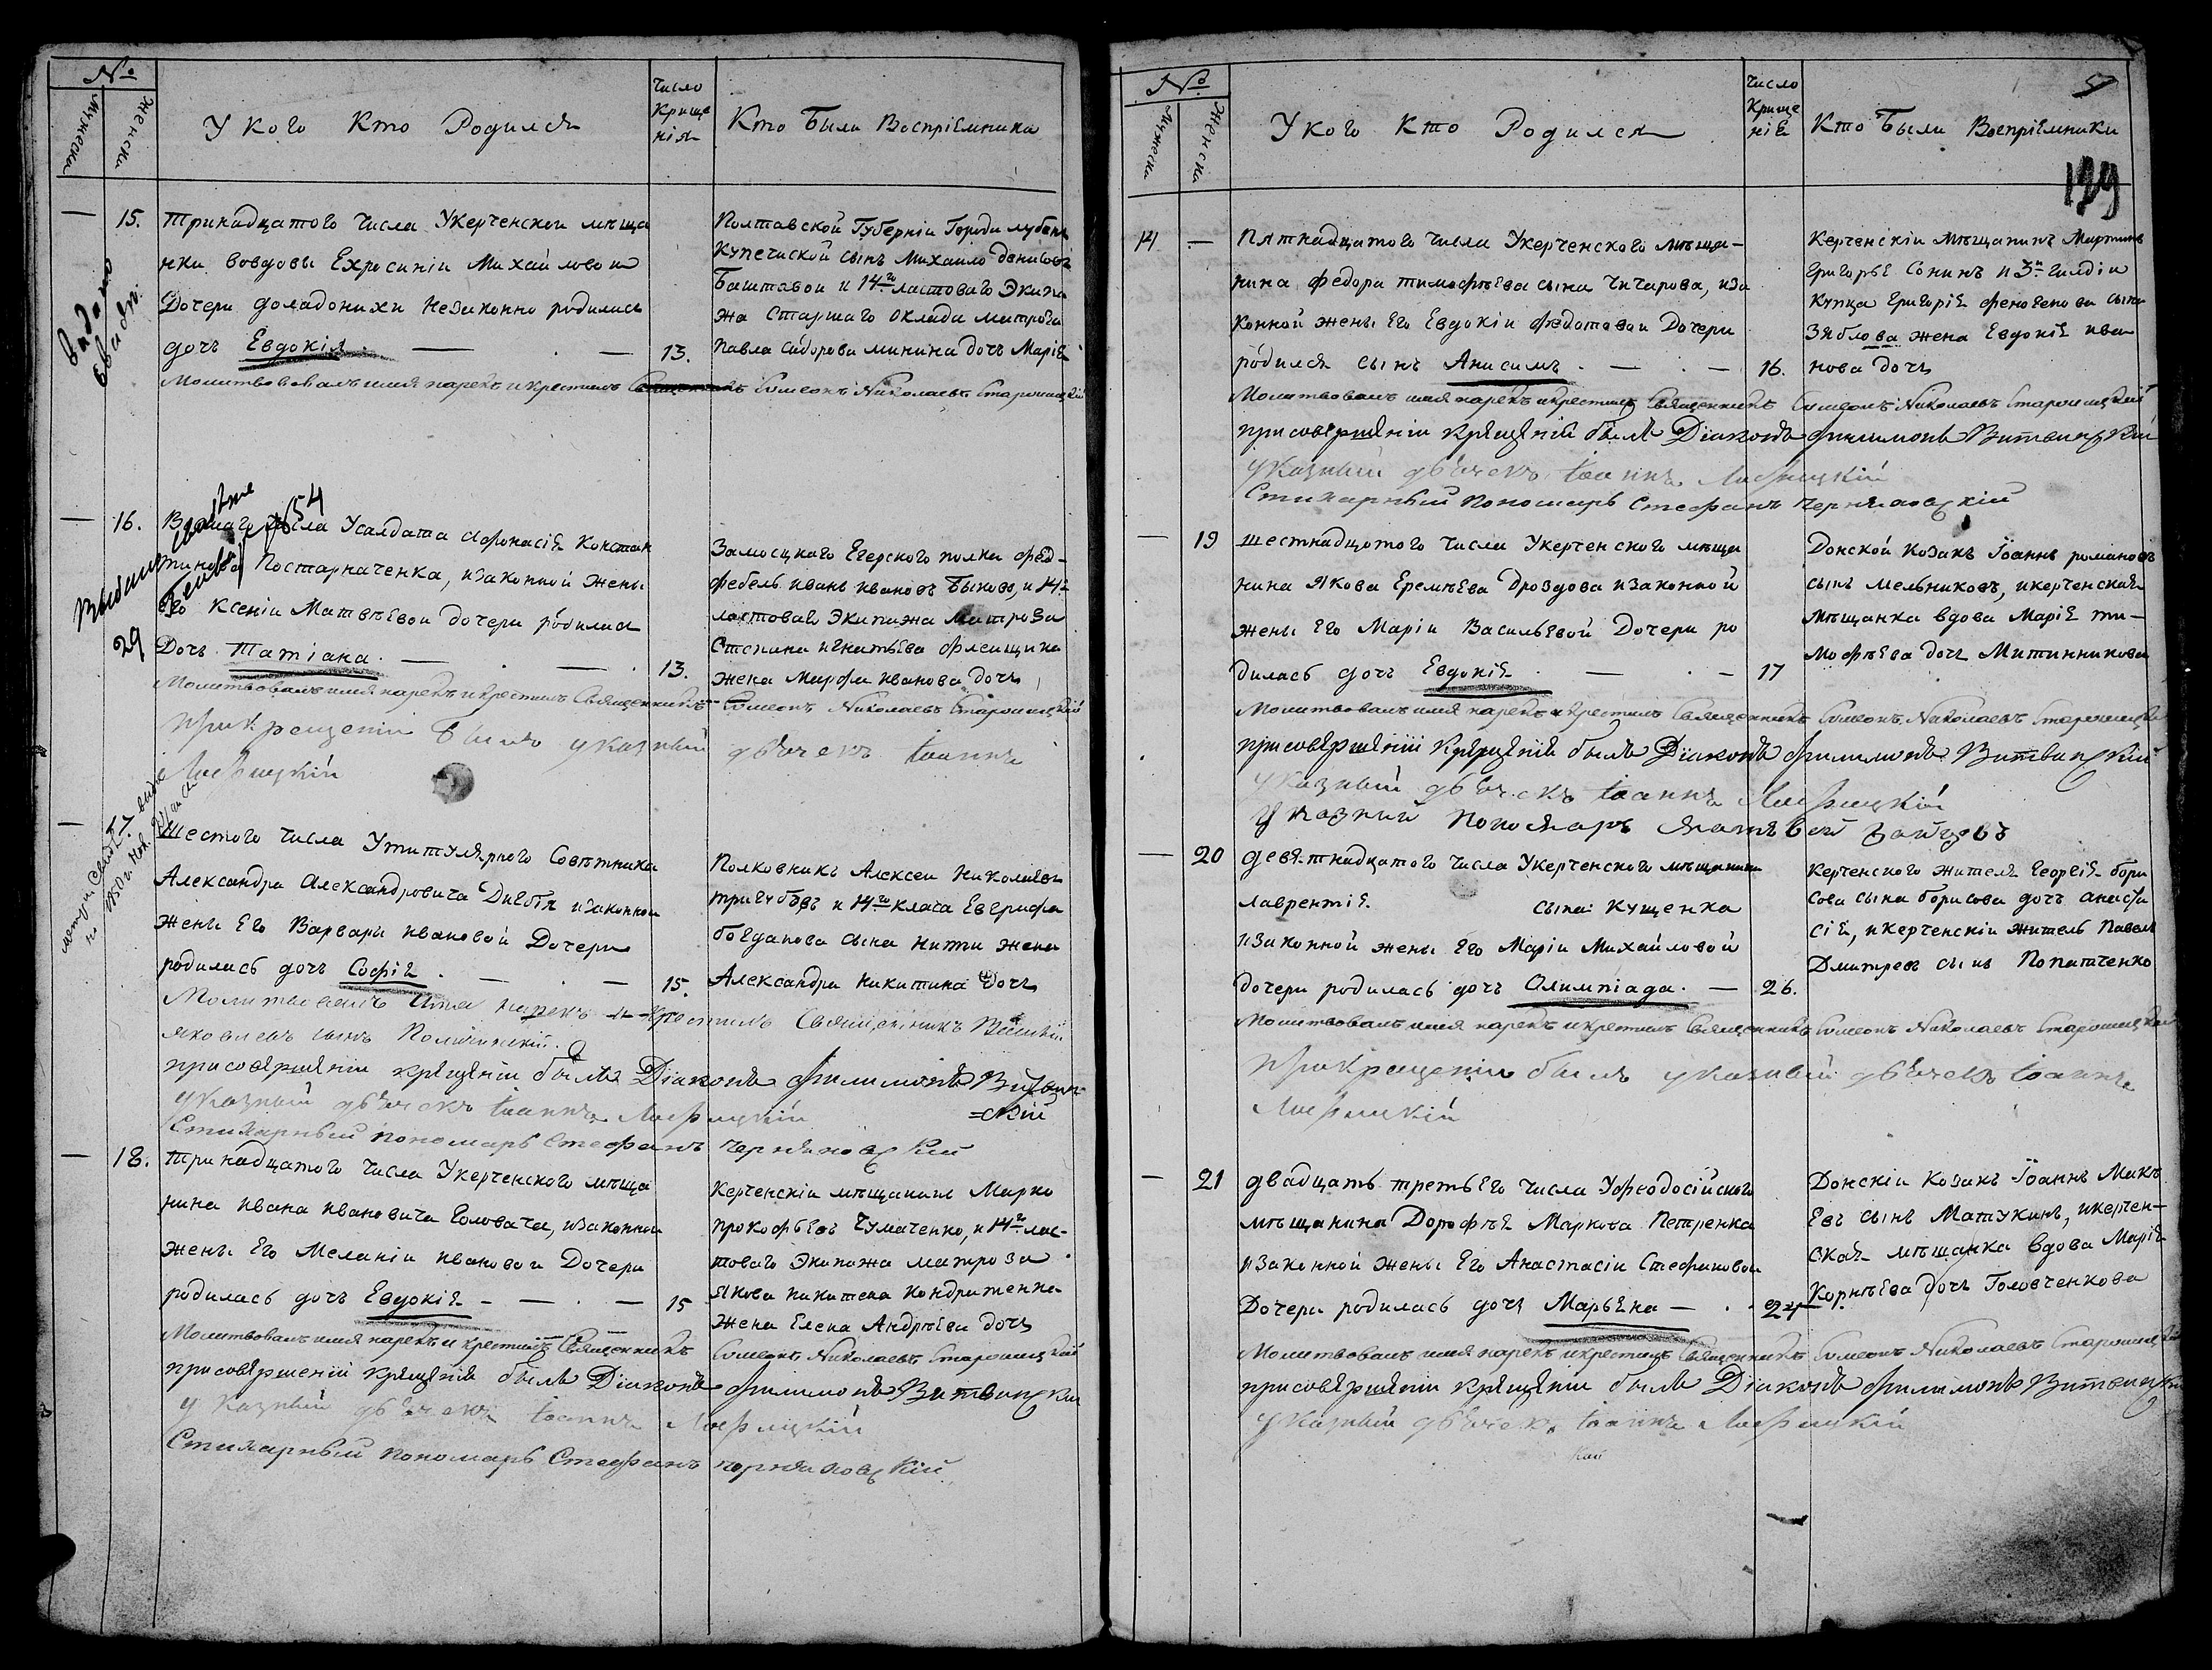 №
Мужеска
Женска
У кого Кто Родился
Число
Креще
нія
Кто были Воспріемники
— 15. Тринадцатого Числа Укерченской мѣща
нки вовдовы Ехросиніи Михайловои
Дочери доладонихи незаконно родилась
дочь Евдокія. — . — 13.
Полтавской Губерніи Города лубенъ
Купеческой сынъ Михайло денисовъ
Баштавои и 14го ластоваго Экипа
жа Старшаго оклада матроса
Павла Сидорова минина дочь Маріѣ
Молитвовалъ имя нарекъ и крестилъ Священникъ Симеонъ Николаевъ Старошицкій
— 16. числа Усалдата Афонасіѣ Констан
тинова Постарначенка, изаконной жены
Его Ксеніи Матвѣевои дочери родилась
Дочь Татіана. — . — . 13.
29
1854
Замосцкаго Егерского полка фед-
фебель иванъ ивановъ Быковъ, и 14го
ластоваго Экипажа Матроза
Степана игнатьева
жена Марфа иванова дочь
Молитвовалъ имя нарекъ и крестилъ Священникъ Симеонъ Николаевъ Старошицкій
Прикрещеніи Былъ указный дьячекъ Іоаннъ
— 17. Шестого Числа Утитулярного Совѣтника
Александра Александровича изаконной
жены Его Варвары ивановой Дочери
родилась дочь Софіѣ. — . — 15.
Полковникъ Алексеи Николаевъ
тригубовъ и 14го класа Евграфа
богданова сына нити жена
Александра никитина дочь
Молитвовалъ имя нарекъ и крестилъ Священникъ
яковлевъ сынъ
присовершеніи крещеніи былъ Діаконъ Филимонъ Витвин-
=скій
указный дьячекъ Іоаннъ
Стихарный пономарь Стефанъ Черняховскій
— 18. Тринадцатого Числа Укерченского мѣща
нина ивана ивановича Головача, изаконной
жены Его Меланіи ивановои Дочери
родилась дочь Евдокіѣ — — . — 15
Керченскіи мѣщанинъ Марко
прокофьевъ Чумаченко, и 14го лас-
товаго Экипажа матроза
Якова никитева кондратенка
жена Елена Андрѣева дочь
Молитвовалъ имя нарекъ и крестилъ Священникъ Симеонъ Николаевъ Старошицкій
присовершеніи крещеніе былъ Діаконъ Филимонъ Витвинскій
указный дьячекъ Іоаннъ
Стихарный пономарь Стефанъ черняховскій
№
Мужеска
Женска
У кого Кто Родился
Число
Креще
ніѣ
Кто Были Воспріемники
139
14 — Пятнадцатого Числа Укерченского мѣща-
нина федора тимофѣева сына Чичарова, иза
конной жены Его Евдокіи федотовои Дочери
родился сынъ Анисимъ. — . — 16.
Керченскіи мѣщанинъ Мартинъ
григорьѣ Сонинъ и 3й гилдіи
Купца григоріѣ сына
Зяблова жена Евдокіѣ ива
нова дочь
Молитвовалъ имя нарекъ и крестилъ Священникъ Симеонъ Николаевъ Старошицкій
присовершеніи крещеніи былъ Діаконъ Филимонъ Витвинскій
указный дьячекъ Іоаннъ
Стихарный пономарь Стефанъ черняховскій
— 19 шестнадцотого числа Укерченского мѣща
нина Якова Еремѣева Дроздова изаконной
жены Его Маріи Васильевой Дочери ро
дилась дочь Евдокіѣ . — . — 17
Донской Козакъ Іоаннъ романовъ
сынъ Мельниковъ, икерченская
Мѣщанка вдова Маріѣ ти-
мофѣева дочь Митинникова
Молитвовалъ имя нарекъ и крестилъ Священникъ Симеонъ Николаевъ Старошицкій
присовершеніи крещеніе былъ Діаконъ Филимонъ Витвинскій
указный дьячекъ Іоаннъ
Указний пономарь Матвей Зайцевъ
— 20 девятнадцатого числа Укерченского мѣщанина
лаврентіѣ сына Кущенка
изаконной жены Его Маріи Михайловой
дочери родилась дочь Олимпіада. — 26.
Керченского жителя Георгіѣ бори
сова сына борисова дочь анаста
сіѣ, и керченскіи житель Павелъ
Дмитревъ сынъ Попатаченко
Молитвовалъ имя нарекъ и крестилъ Священникъ Симеонъ Николаевъ Старошицкій
Прикрещеніи былъ указный дьячекъ Іоаннъ
— 21 двадцать третьего числа Уфеодосійского
мѣщанина Дорофѣѣ Маркова Петренка
изаконной жены Его Анастасіи Стефановои
Дочери родилась дочь Марьѣна — . . 24
Донскіи Козакъ Іоаннъ Макѣ
Евъ сынъ Матукинъ, икерчен-
скаѣ мѣщанка вдова Маріѣ
Корнѣева дочь Головченкова
Молитвовалъ имя нарекъ и крестилъ Священникъ Симеонъ Николаевъ Старошицкій
присовершеніи крещеніи былъ Діаконъ Филимонъ Витвинскій
указный дьячекъ Іоаннъ